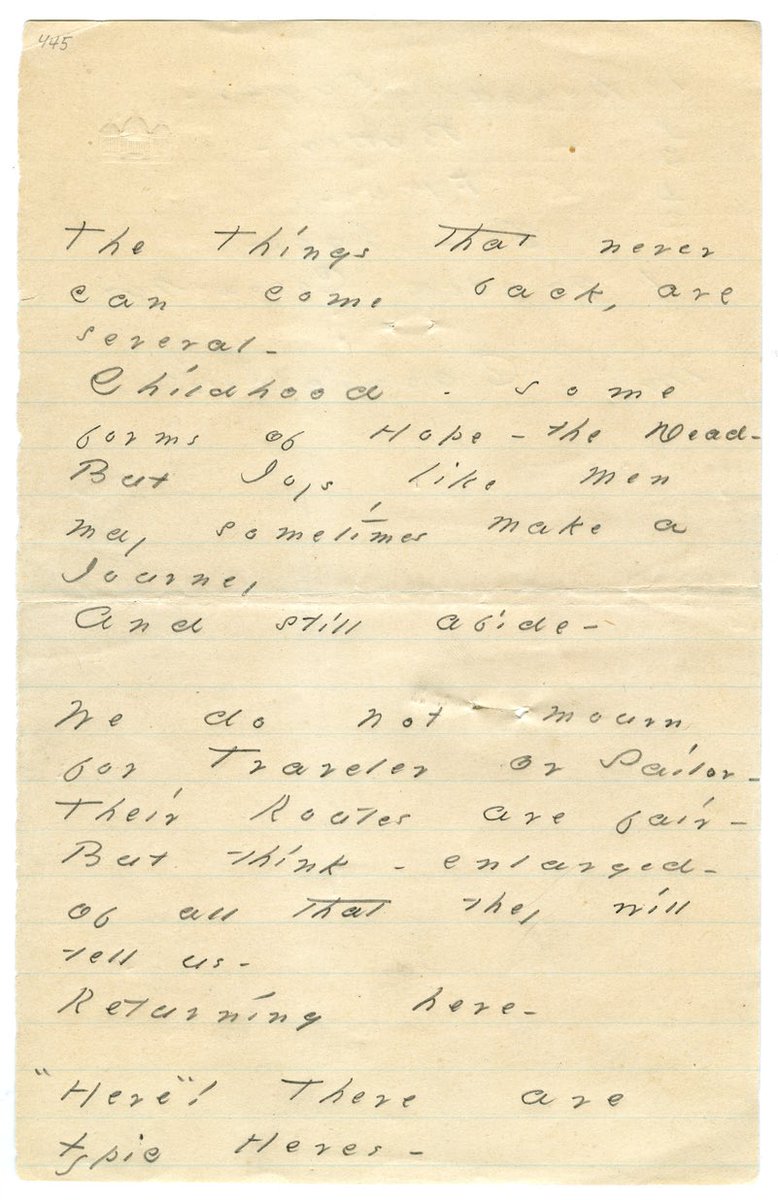 445
The Things that never
can come back, are
several -
Childhood - some
forms of Hope - the Dead -
But Joys like Men
may sometimes make a
Journey
And still abide -
We do not mourn
for Traveler or Sailor -
Their Routes are fair -
But think - enlarged -
of all that they will
tell us -
Returning here -
"Here"! There are
typic Heres -